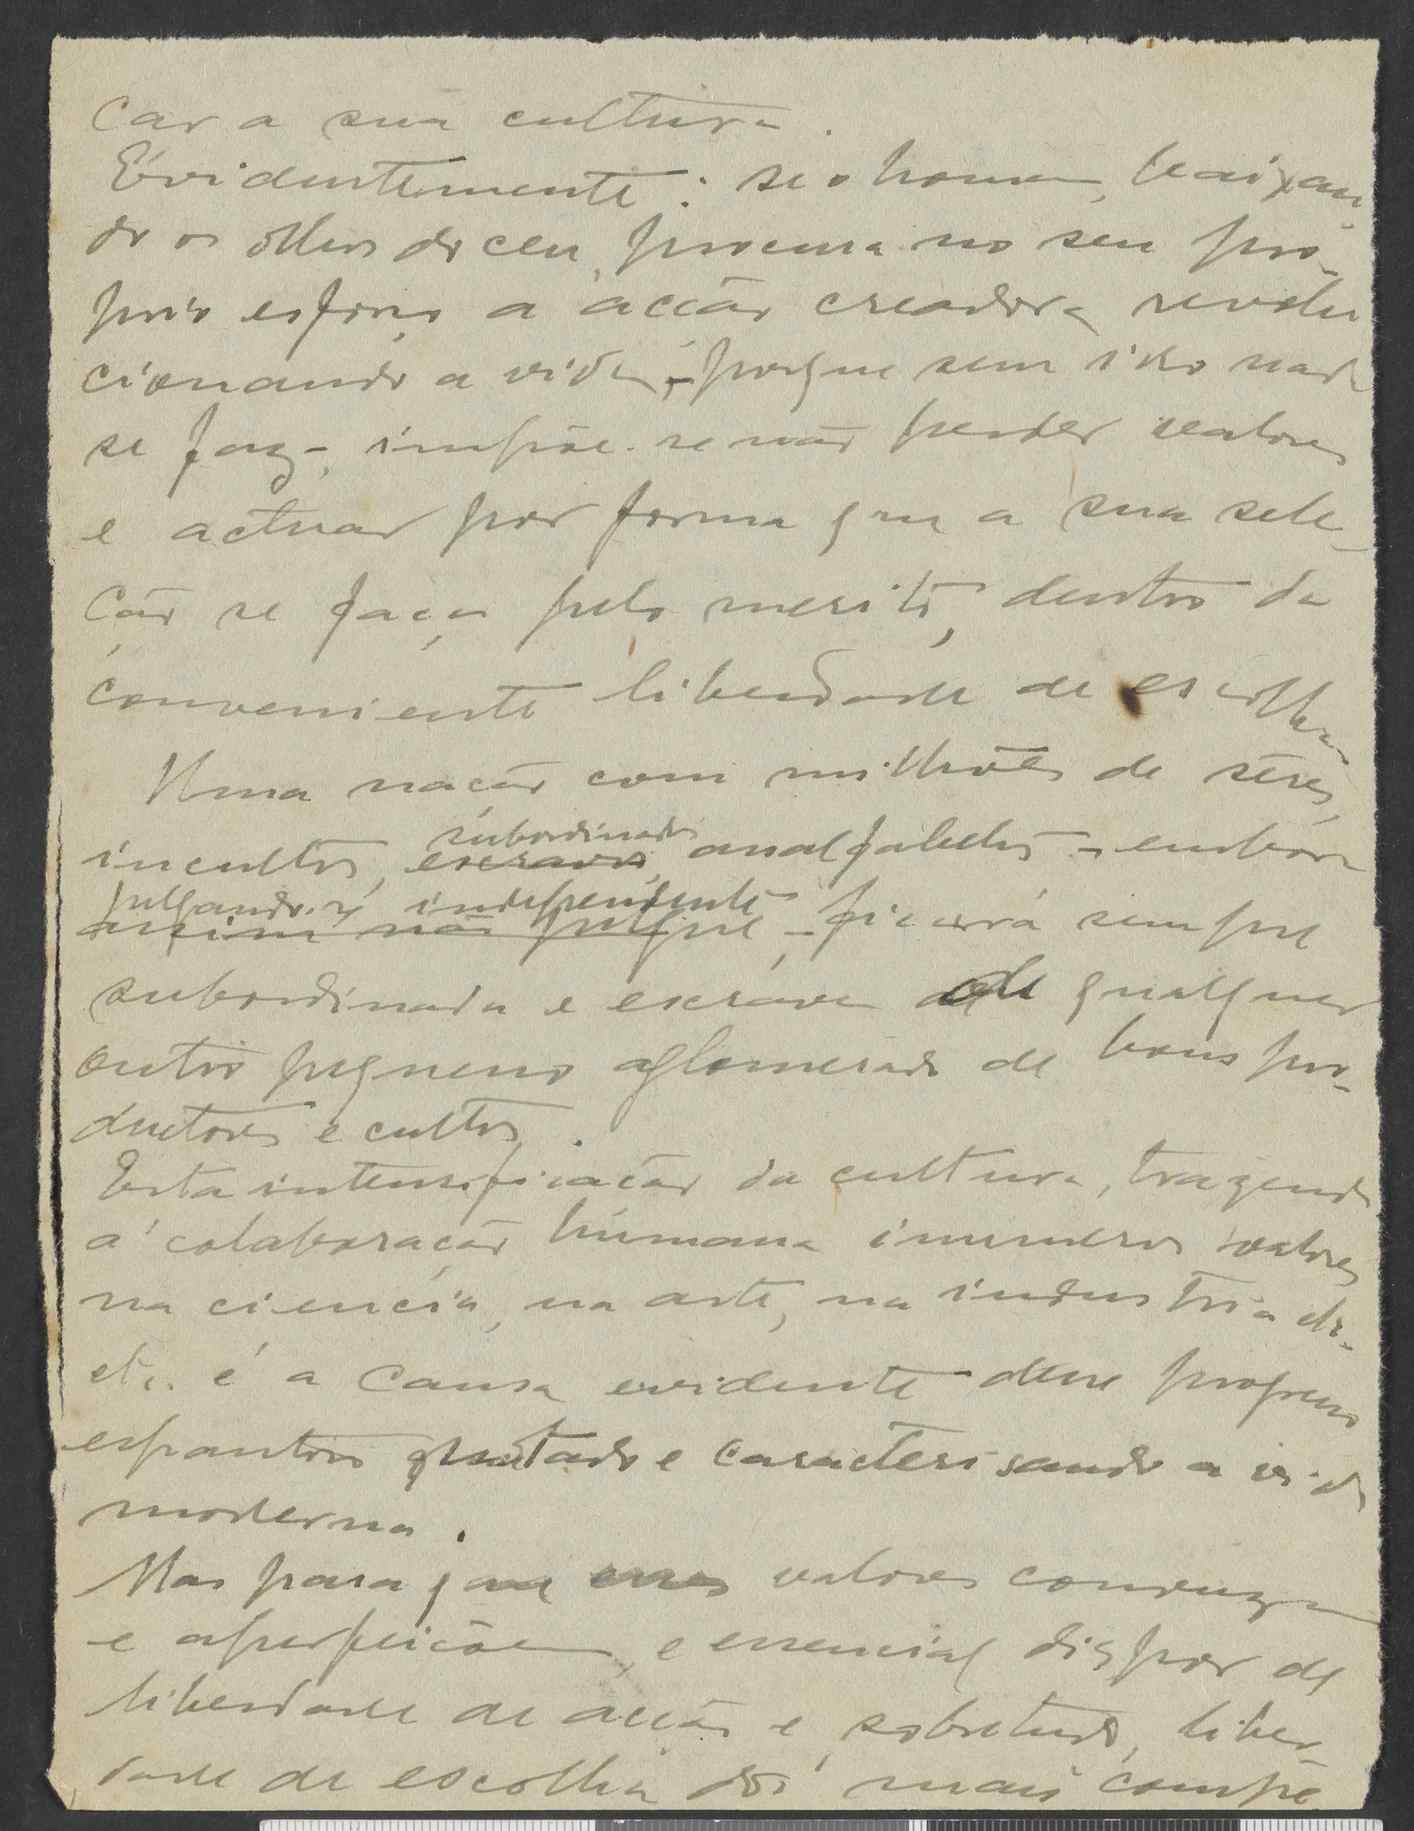 car a sua cultura.
Evidentemente: se o homem, baixan-
do os olhos do ceu, procura no seu pro-
prio esforço a acção creadora, revolu
cionando a vida, - porque sem isso nada
se faz -, impõe-se não perder valores
e actuar por forma que a sua sele-
ção se faça pelo merito, dentro da
conveniente liberdade de escolha.
Uma nação com milhões de sêres,
subordinados
incultos, escravos, analfabetos - embora
julgando-se independente
assim não julgue, - ficará sempre
subordinada e escrava de qualquer
outro pequeno aglomerado de bons pro-
ductores e cultos.
Esta intensificação da cultura, trazendo
á colaboração humana inumeros valores
na ciencia, na arte, na industria etc.
etc. é a causa evidente desse progresso
espantoso e caracterisando a vida
moderna.
Mas para que esses valores conduzam
e aperfeiçoem, e essencial dispor de
liberdade de acção e, sobretudo, liber-
dade de escolha dos mais compe